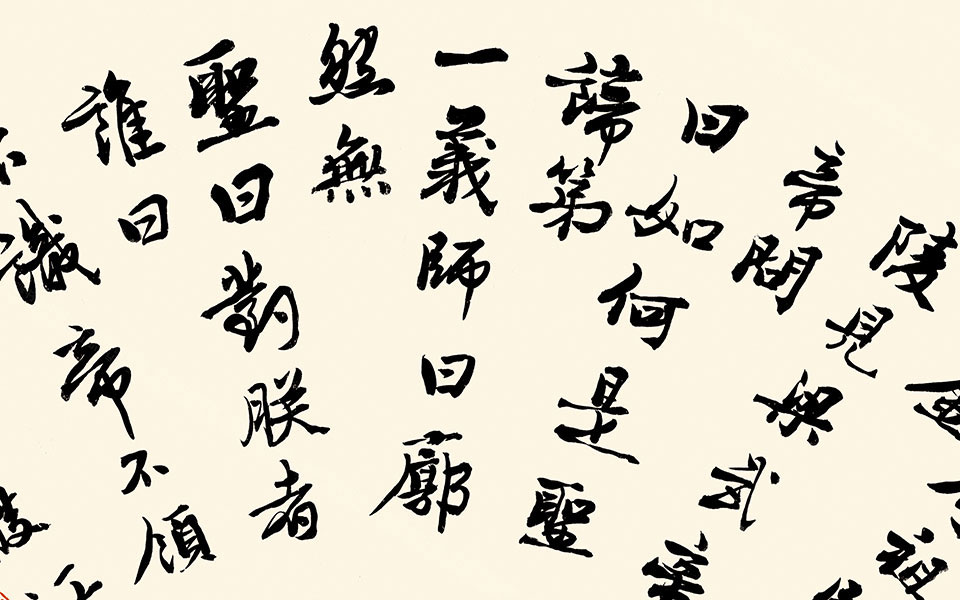 祖
陵見與武帝
帝問
曰如何是聖
諦第
一義師曰廓
然無
聖曰對朕者
誰曰
不識帝不領